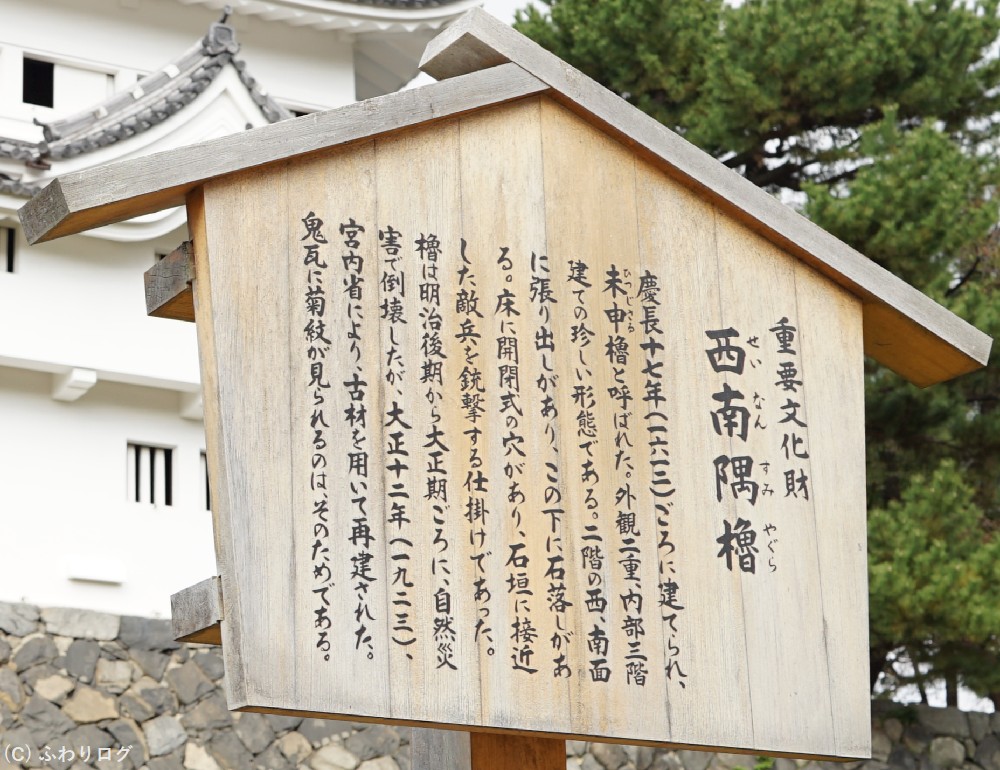 重要文化財
西南隅櫓
せいなんすみやぐら
慶長十七年(一六一二)ごろに建てられ、
未申櫓と呼ばれた。外観二重、内部三階
ひつじさる
建ての珍しい形態である。二階の西、南面
に張り出しがあり、この下に石落しがあ
る。床に開閉式の穴があり、石垣に接近
した敵兵を銃撃する仕掛けであった。
櫓は明治後期から大正期ごろに、自然災
害で倒壊したが、大正十二年(一九二三)、
宮内省により、古材を用いて再建された。
鬼瓦に菊紋が見られるのは、そのためである。
(C) ふわりログ